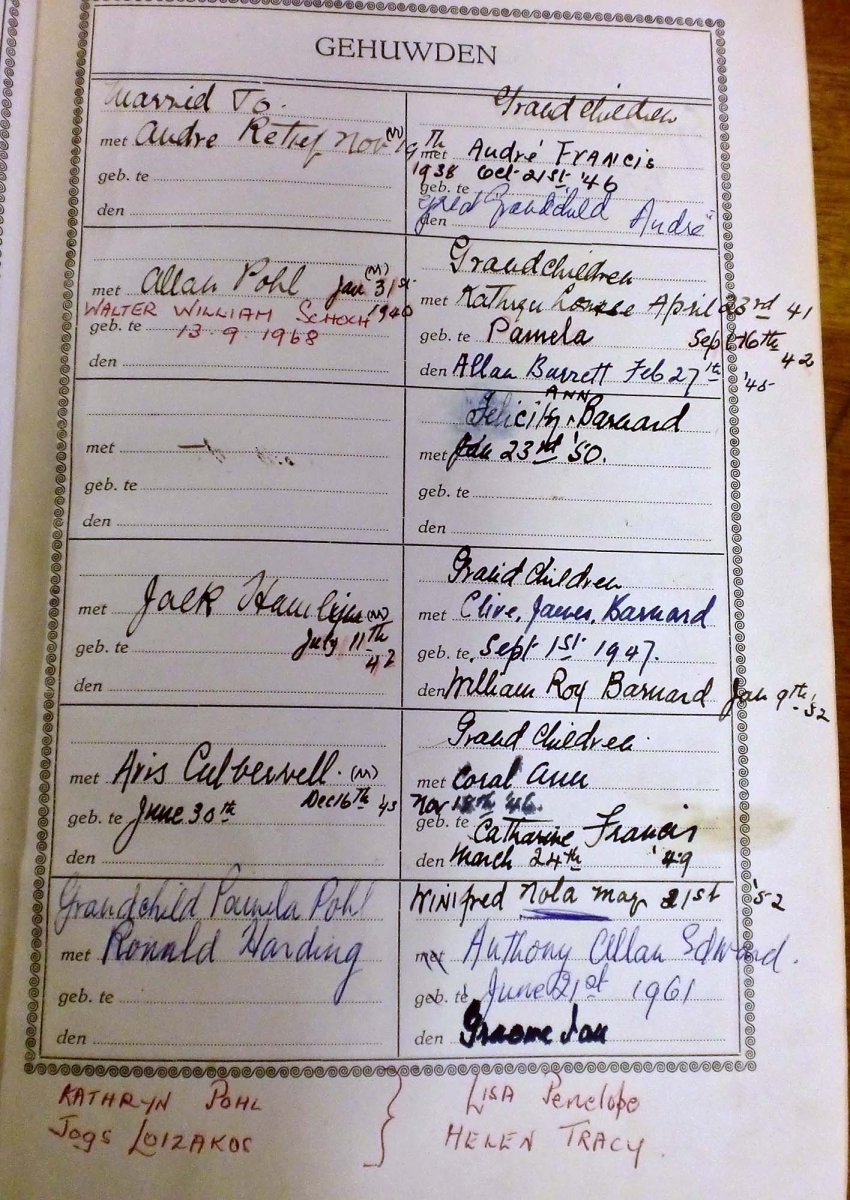 GEHUWDEN
Married To.
met Andre Retief Nov (M) 19th
geb. te 1938
den
Grandchildren
met André Francis
geb. te Oct 21st '46
den Grandchild André
met Allan Pohl Jan (M) 31st
1940
WALTER WILLIAM SCHOCH
geb. te 13.9.1968
den
Grandchildren
met Kathryn April 23rd 41
geb. te Pamela Sept 16th
42
den Allan Barrett Feb 27th '45
met
geb. te
den
ANN
Felicity Barnard
met Jan 23rd '50.
geb. te
den
met Jack (M)
geb. te July 11th
42
den
Grand Children
met Clive, James, Barnard
geb. te Sept 1st 1947.
den William Roy Barnard Jan 9th '52
met Avis Culverwell. (M)
geb. te June 30th Dec 16th '43
den
Grand Children.
met Coral Ann
Nov 18th '46.
geb. te Catharine Francis
den March 24th '49
Grandchild Pamela Pohl
met Ronald Harding
geb. te
den
Winifred Nola May 21st '52
met Anthony Allan Edward.
geb. te June 21st 1961
den Graeme Ian
KATHRYN POHL
Jogs LOIZAKOS
LISA Penelope
HELEN TRACY.